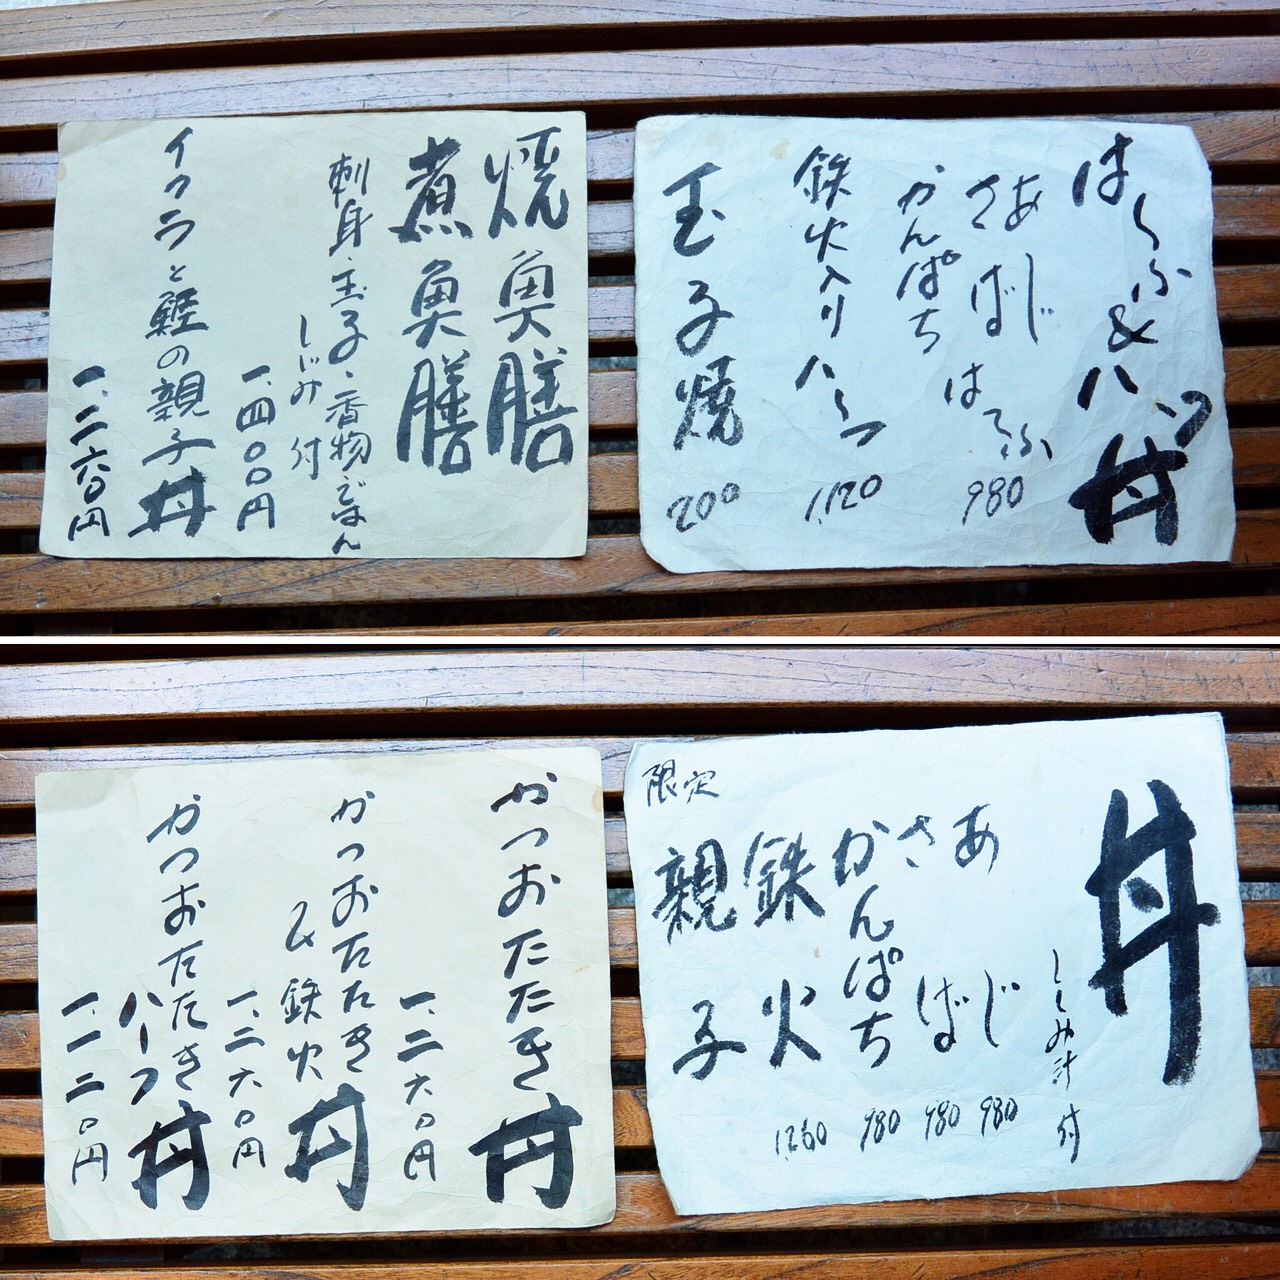 焼魚膳
煮魚膳
刺身、玉子、香物ごはん
しじみ付
一、四〇〇円
イクラと鮭の親子丼
一、二六〇円
はーふ&ハーフ丼
あじ
さば
はーふ
980
かんぱち
鉄火入りハーフ
1,120
玉子焼
200
かつおたたき丼
一、二六〇円
かつおたたき
&鉄火丼
一、二六〇円
かつおたたき
ハーフ丼
一、一二〇円
丼
しじみ汁付
あじ 980
さば 980
かんぱち 980
鉄火 1,260
限定
親子